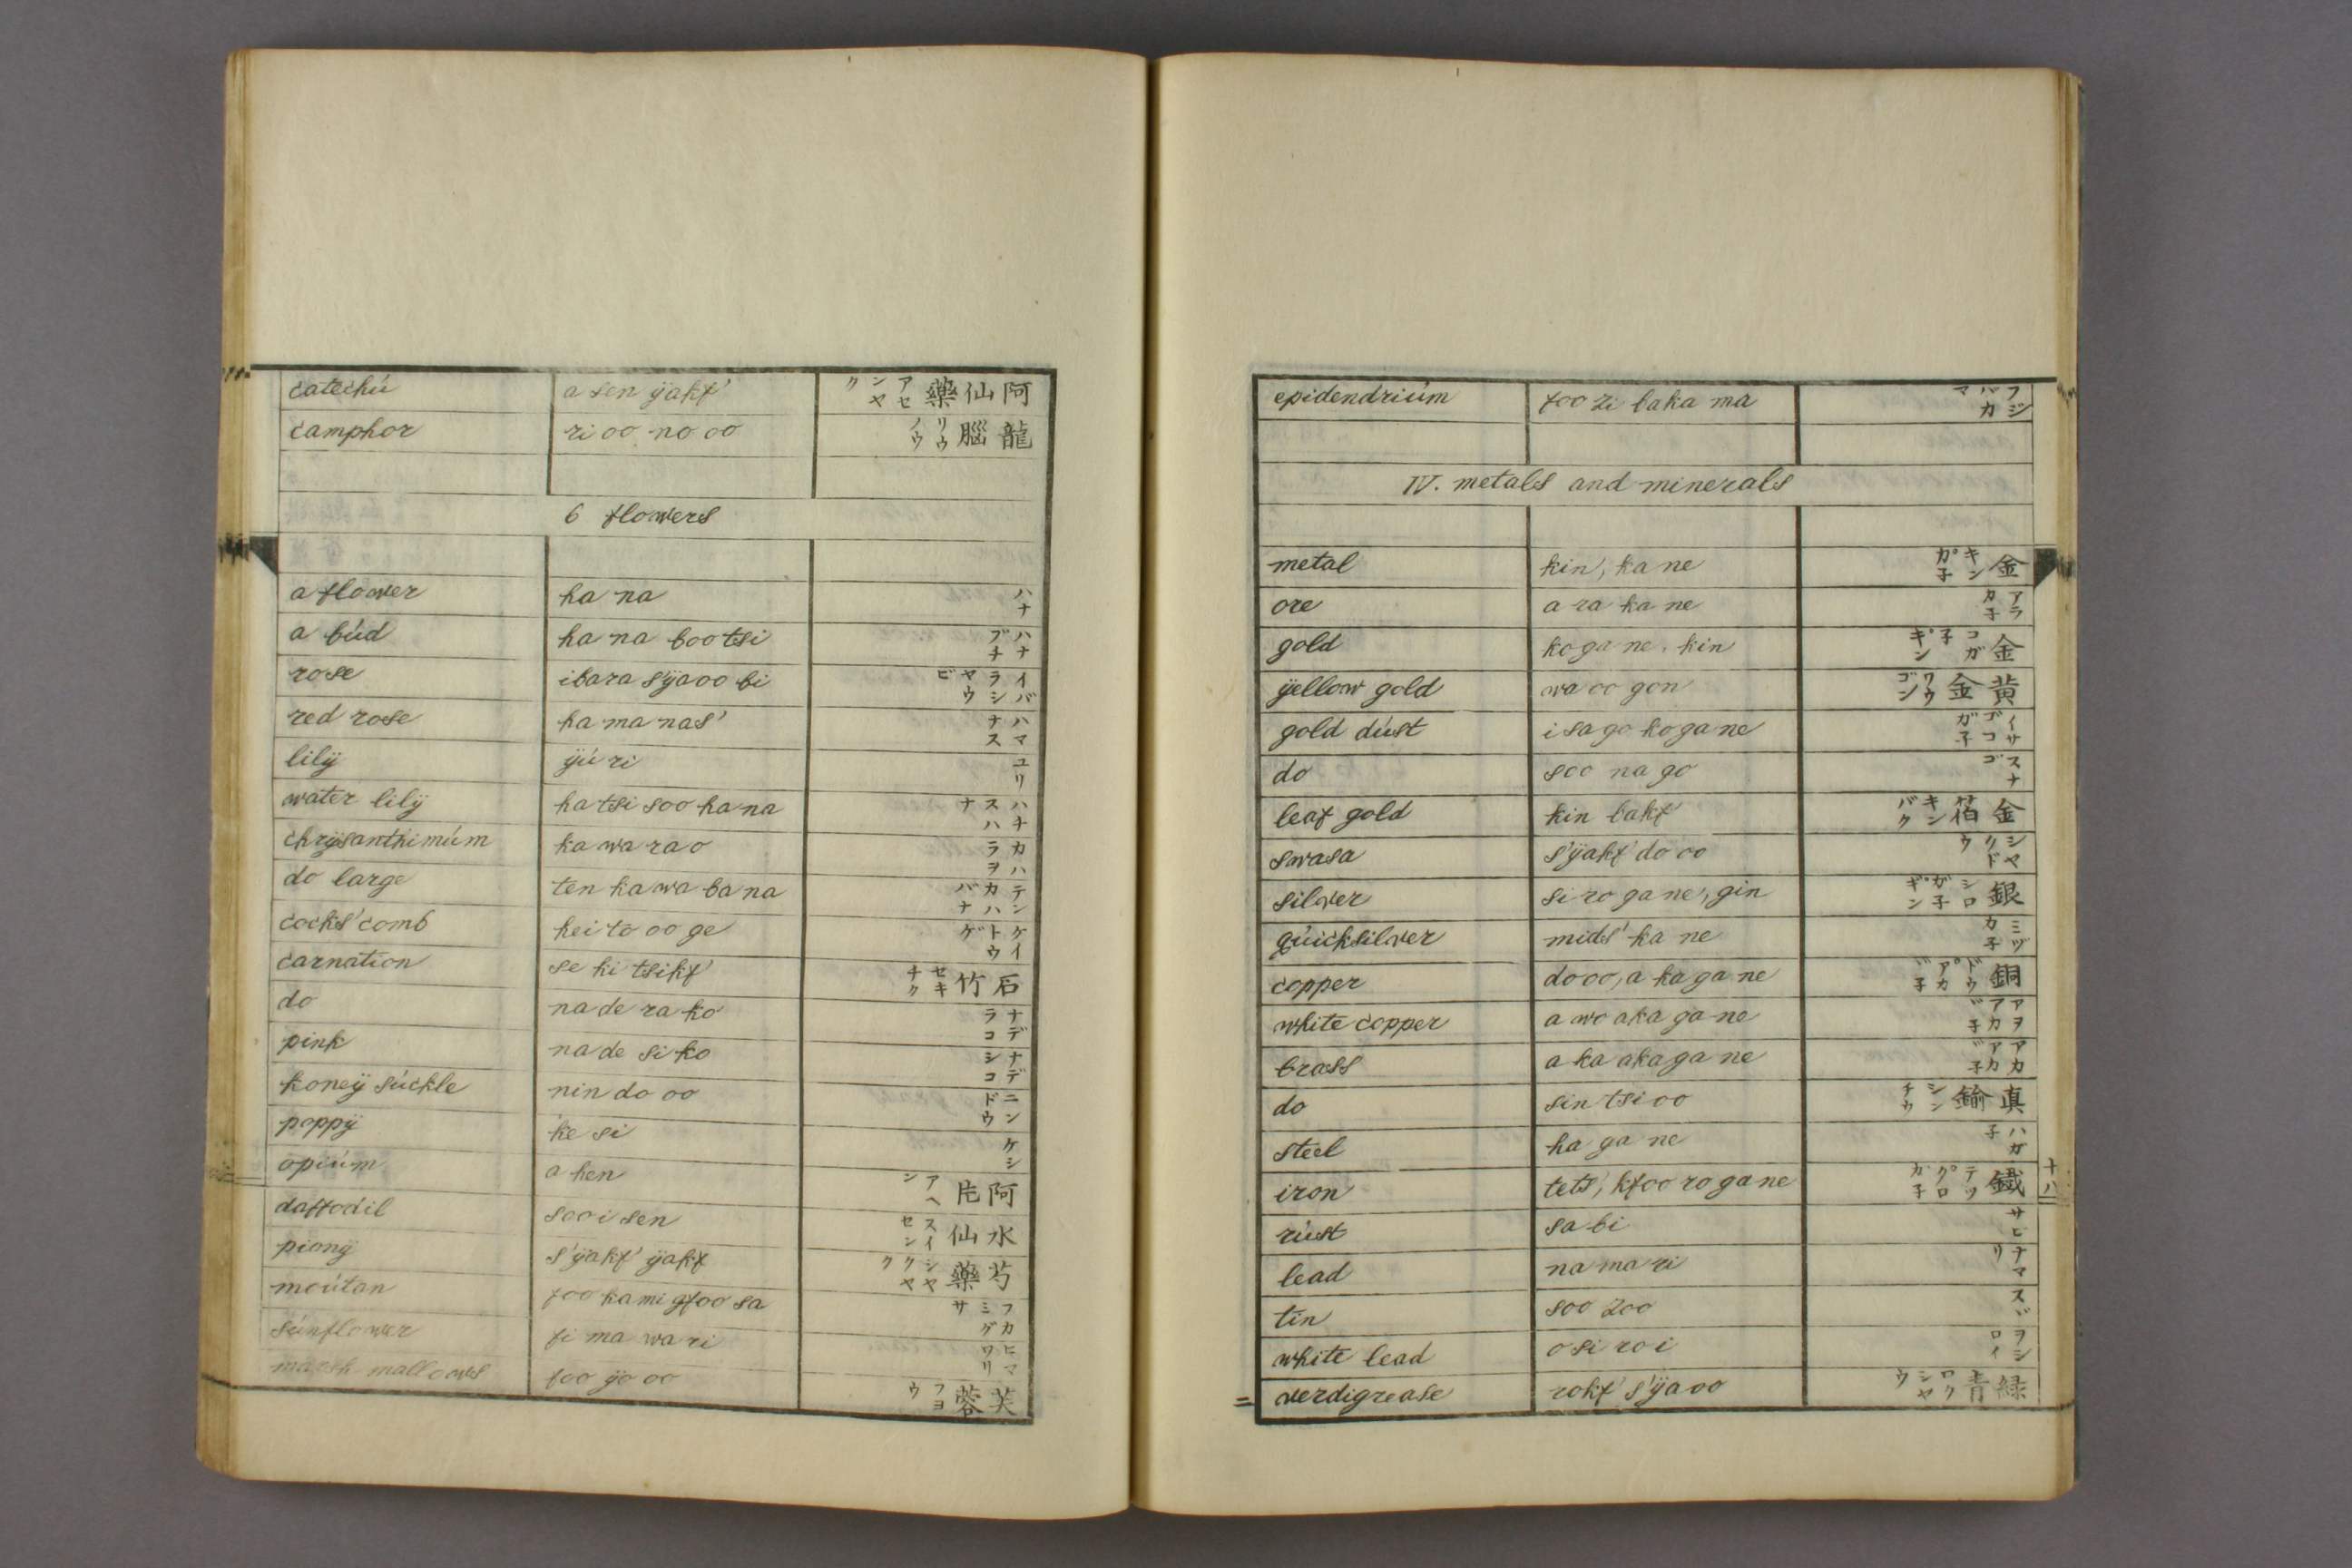 catechú a sen ÿakf' 阿仙藥 アセンヤク
camphor ri oo no oo 龍腦 リウノウ
6 flowers
a flower ha na ハナ
a búd ha na boo tsi ハナブチ
rose ibara s'ÿaoo bi イバラシヤウビ
red rose ha ma nas' ハマナス
lilÿ ÿú ri ユリ
water lilÿ ha tsi soo ha na ハチスハナ
chrÿsanthimúm ka wa rao カハラヲ
do large ten ka wa ba na テンカハバナ
cocks'comb kei to oo ge ケイトウゲ
carnation se ki tsikf' 石竹 セキチク
do na de ra ko ナデラコ
pink na de si ko ナデシコ
honeÿ súckle nin do oo ニンドウ
poppÿ ke si ケシ
opiúm a hen 阿片 アヘン
daffodil soo i sen 水仙 スイセン
pionÿ s'ÿakf' ÿakf 芍藥 シヤクヤク
moútan foo ka mi gfoo sa フカミグサ
súnflower fi ma wa ri ヒマワリ
marsh mallows foo ÿo oo 芙蓉 フヨウ
epidendriúm foo zi baka ma フジバカマ
IV. metals and minerals
metal kin, ka ne 金 キン。カ子
ore a ra ka ne アラカ子
gold ko ga ne, kin 金 コガ子。キン
ÿellow gold wa oo gon 黄金 ワウゴン
gold dúst i sa go ko ga ne イサゴコガ子
do soo na go スナゴ
leaf gold kin bakf' 金箔 キンバク
swasa s'ÿakf' do oo シヤクドウ
silver si ro ga ne, gin 銀 シロガ子。ギン
qúicksilver mids' ka ne ミヅカ子
copper do oo, a ka ga ne 銅 ドウ。アカヾ子
white copper a wo aka ga ne アヲアカヾ子
brass a ka aka ga ne アカアカヾ子
do sin tsi oo 真鍮 シンチウ
steel ha ga ne ハガ子
iron tets', kfoo ro ga ne 鐵 テツ。クロガ子
rúst sa bi サビ
lead na ma ri ナマリ
tin soo zoo スヾ
white lead o si ro i ヲシロイ
verdigrease rokf' s'ÿa oo 緑青 ロクシヤウ
十八